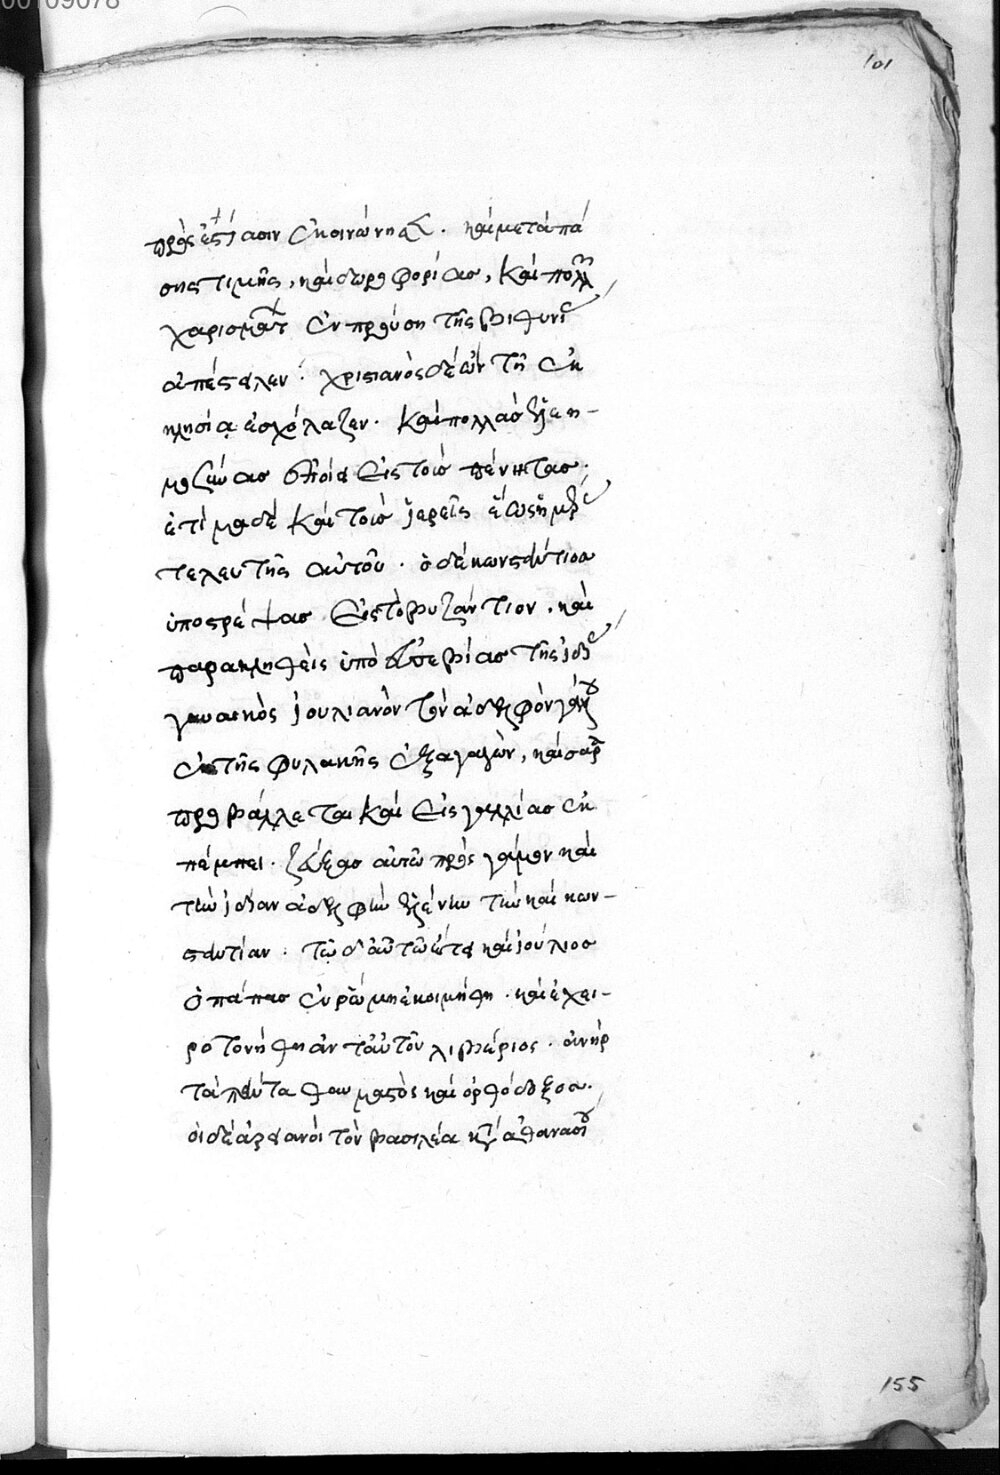 00109078
101
πρὸς ἑστίασιν ἐκοινώνησε. καὶ μετὰ πά
σης τιμῆς, καὶ δωροφορίας, καὶ πολλῶν
χαρισμάτων ἐν προύση τῆς βιθυνίας
ἀπέστειλεν. χριστιανὸς δὲ ὢν τῆ ἐκ
κλησία ἐσχόλαζεν. καὶ πολλὰς ἐλεη-
μοσύνας ἐποίει εἰς τοὺς πένητας.
ἐτίμα δὲ καὶ τοὺς ἱερεῖς ἕως ἡμέρας
τελευτῆς αὐτοῦ. ὁ δὲ κωνστάντιος
ὑποστρέψας εἰς τὸ βυζάντιον. καὶ
παρακληθεὶς ὑπὸ εὐσεβίας τῆς ἰδίας
γυναικὸς ἰουλιανὸν τὸν ἀδελφὸν γάλλου
ἐκ τῆς φυλακῆς ἐξαγαγὼν, καίσαρα
προβάλλεται καὶ εἰς γαλλίας ἐκ
πέμπει. ζεύξας αὐτῶ πρὸς γάμον καὶ
τὴν ἰδίαν ἀδελφὴν ἑλένην τὴν καὶ κων-
σταντίαν. τῶ δ' αὐτῶ ἔτει καὶ ἰούλιος
ὁ πάπας ἐν ῥώμη ἐκοιμήθη. καὶ ἐχει-
ροτονήθη ἀντ' αὐτοῦ λιβέριος. ἀνὴρ
τὰ πάντα θαυμαστὸς καὶ ὀρθόδοξος.
οἱ δὲ ἀρειανοὶ τὸν βασιλέα κατὰ ἀθανασίου
155